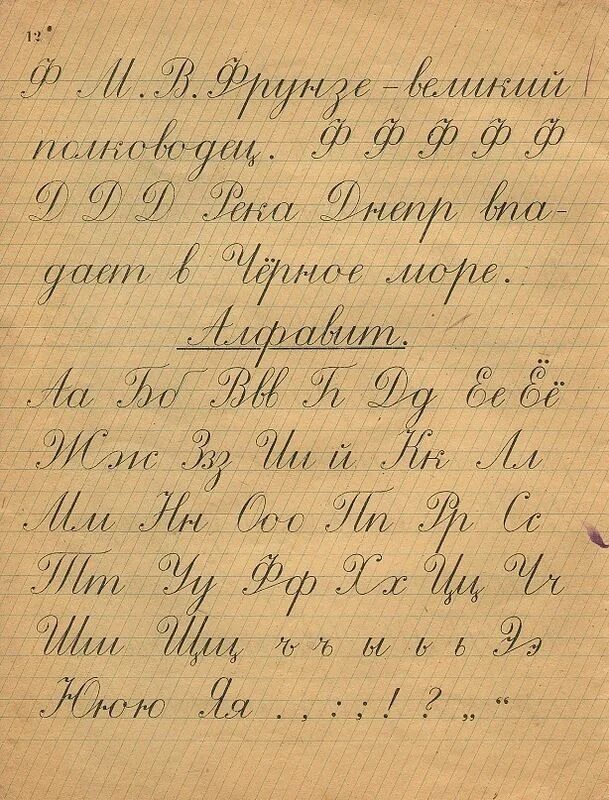 12
Ф М. В. Фрунзе – великий
полководец. Ф Ф Ф Ф Ф
Д Д Д Река Днепр впа-
дает в Чёрное море.
Алфавит.
Аа Бб Ввв Гг Дд Ее Ёё
Жж Зз Ии й Кк Лл
Мм Нн Ооо Пп Рр Сс
Тт Уу Фф Хх Цц Чч
Шш Щщ ъ ъ ы ь ь Ээ
Ююю Яя . , : ; ! ? „ “